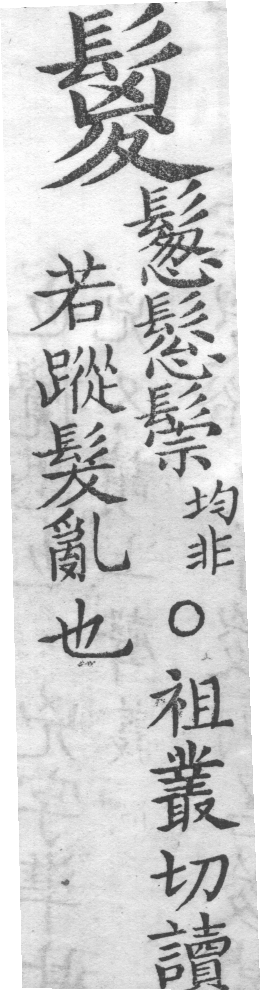 鬉
鬃均非○祖叢切讀
若蹤髮亂也